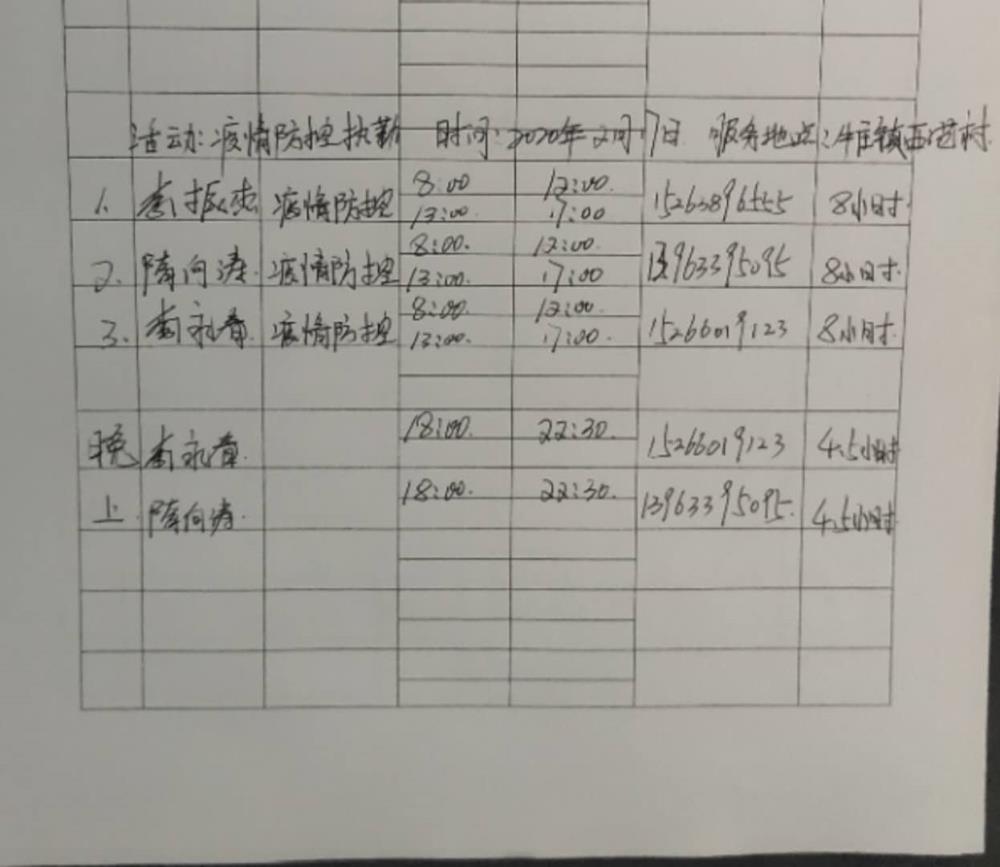 活动:疫情防控执勤 时间:2020年2月17日 服务地点:牛庄镇西范村
1. 李振杰 疫情防控 8:00 12:00. 15263896555 8小时.
13:00. 17:00
2. 隋向涛. 疫情防控 8:00. 12:00. 13963395095 8小时.
13:00. 17:00
3. 李永春. 疫情防控 8:00. 12:00. 15266019123 8小时.
13:00. 17:00.
晚 李永春. 18:00. 22:30. 15266019123 4.5小时
上. 隋向涛. 18:00. 22:30. 13963395095. 4.5小时